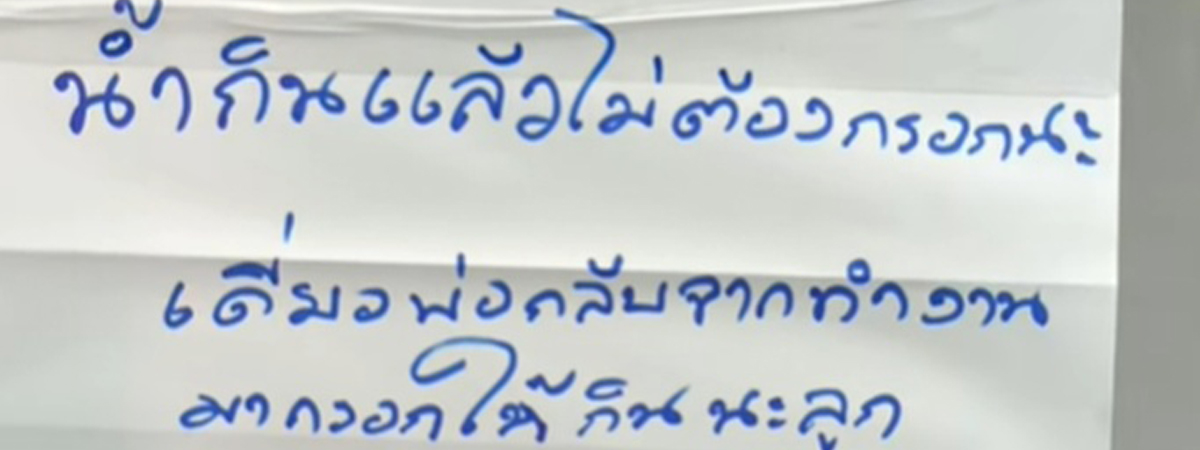 น้ำกินแล้วไม่ต้องกรอกนะ
เดี่ยวพ่อกลับจากทำงาน
มากรอกให้กินนะลูก